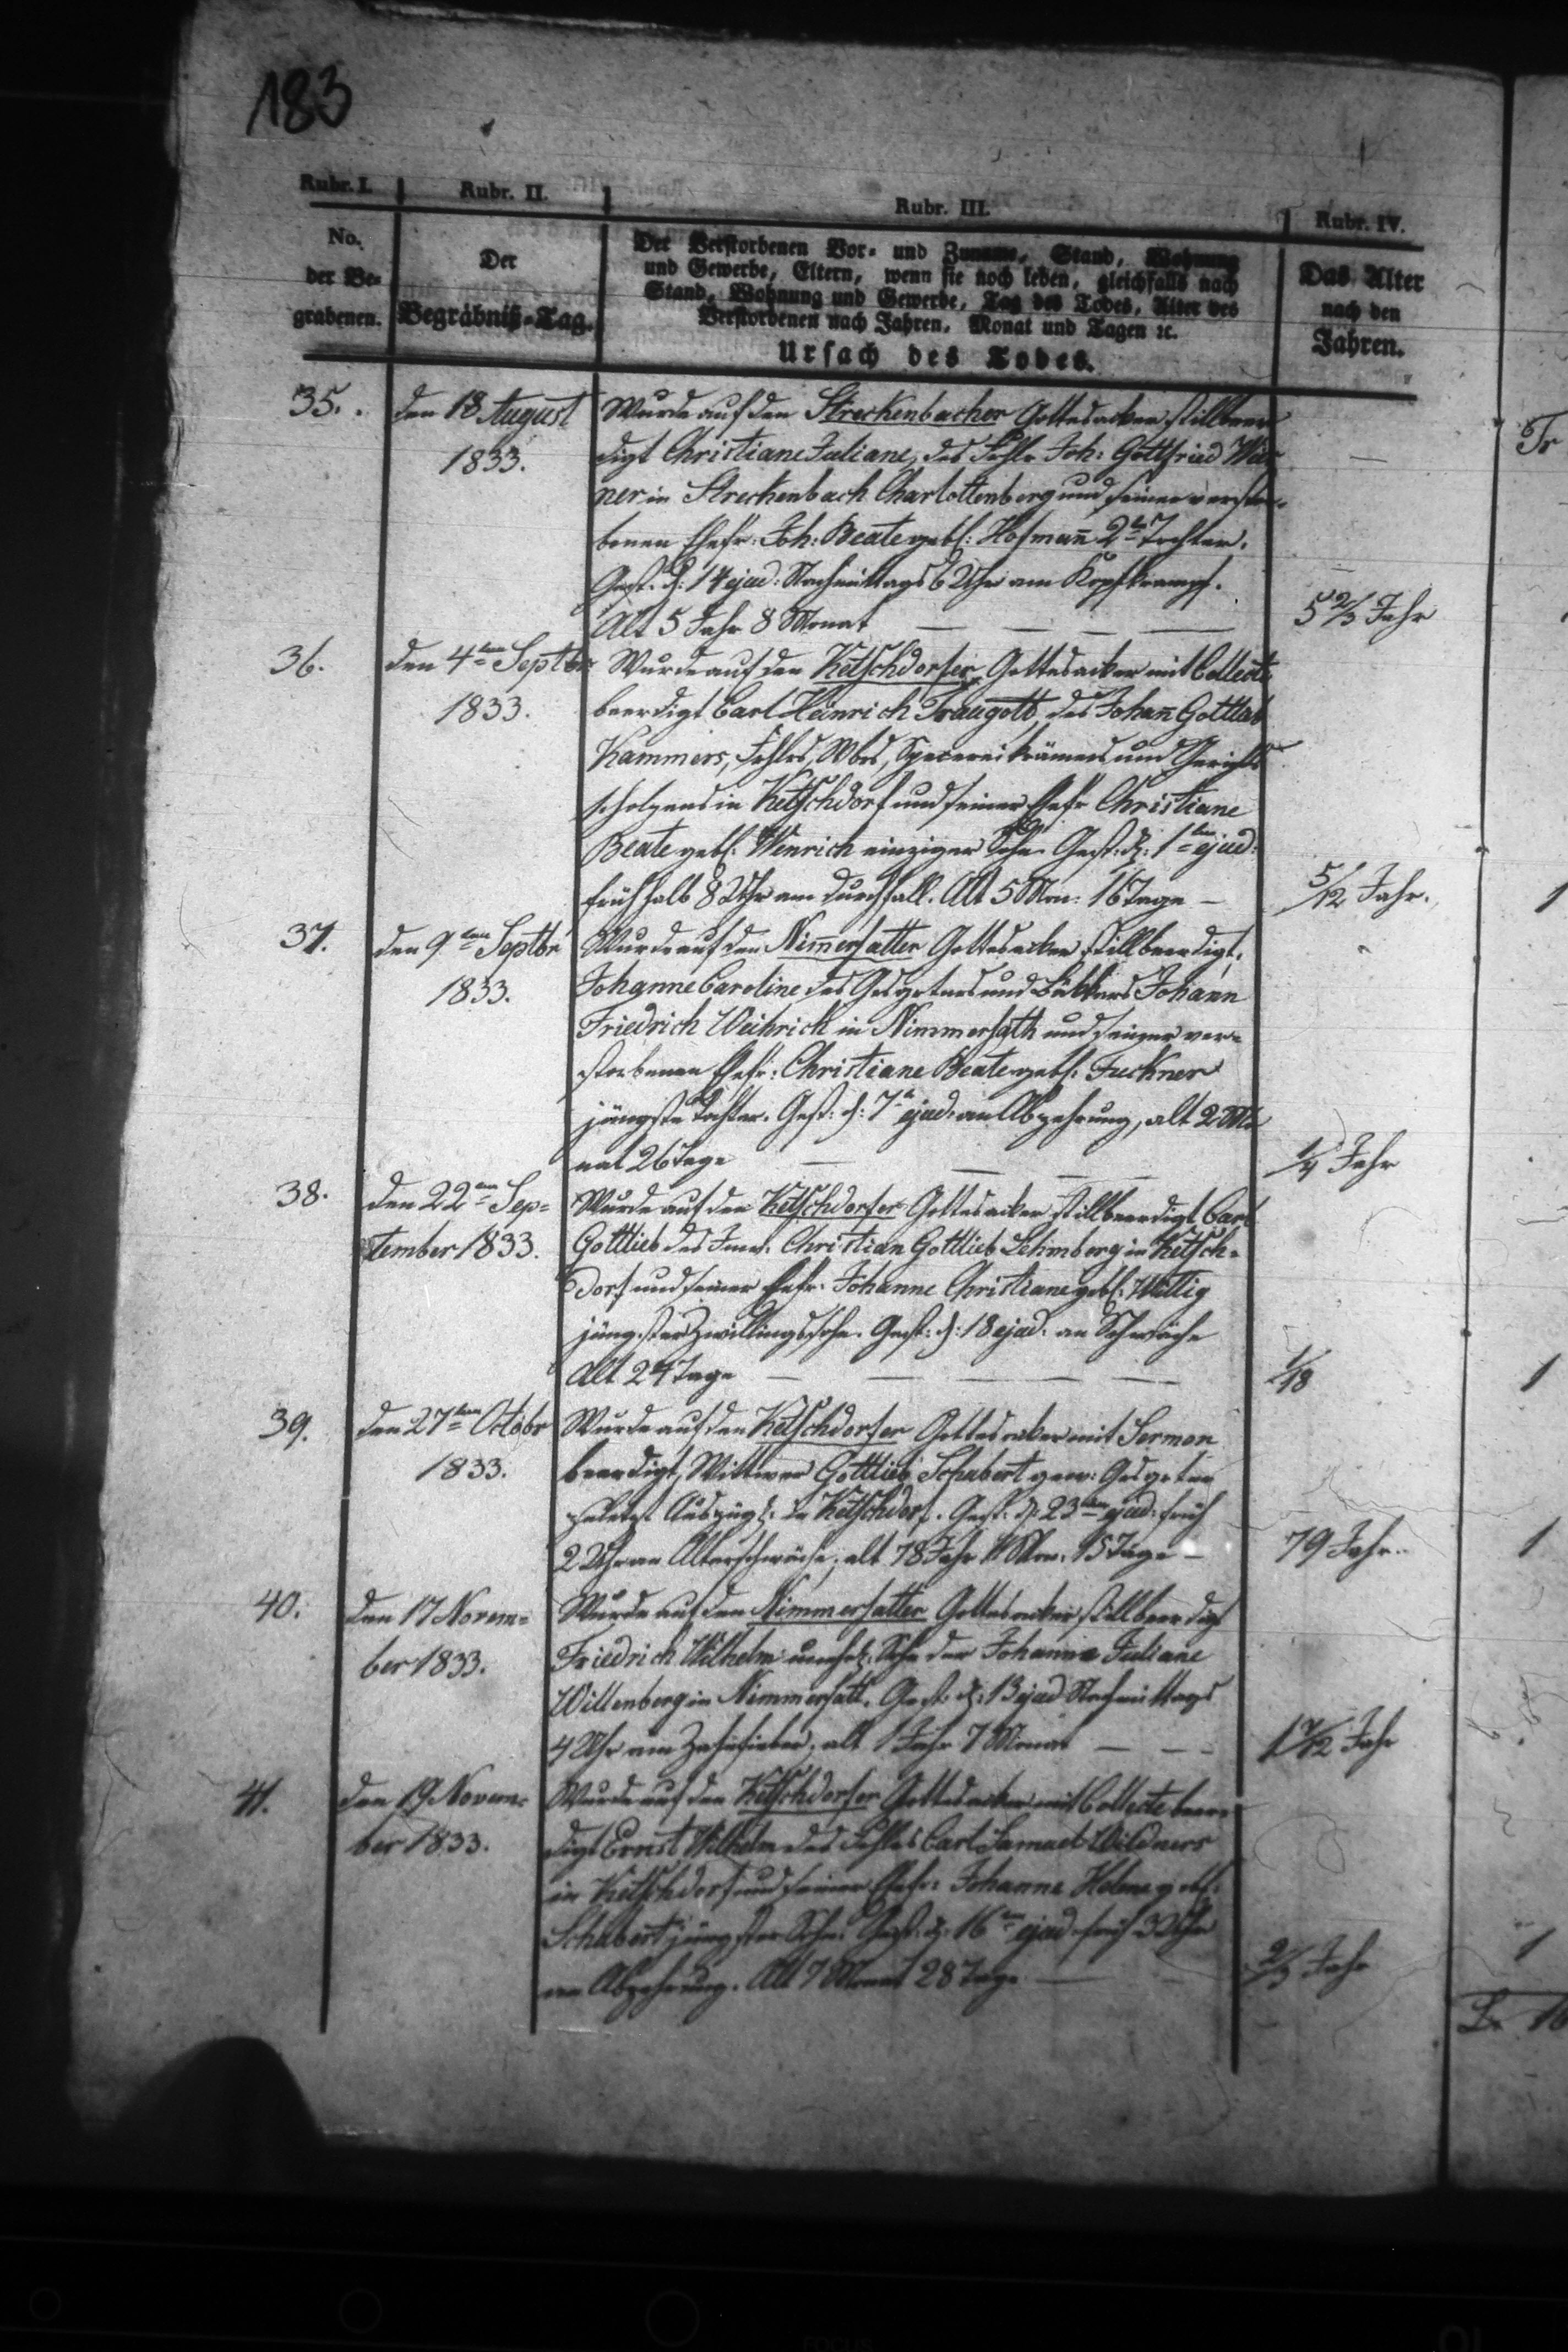 183
Rubr. I. Rubr. II. Rubr. III. Rubr. IV.
No. der Be- grabenen.
Der Begräbniß-Tag.
Der Verstorbenen Vor- und Zuname, Stand, Wohnung
und Gewerbe, Eltern, wenn sie noch leben, gleichfalls nach
Stand, Wohnung und Gewerbe, Tag des Todes, Alter des
Verstorbenen nach Jahren, Monat und Tagen ꝛc.
Ursach des Todes.
Das Alter nach den Jahren.
35. den 18 August Wurde auf den Streckenbacher Gottesacker still beer
1833. digt Christiane Juliane, des Johann Gottfried
ner in Streckenbach Charlottenberg und seiner verstor-
benen Ehefr: Joh: Beate geb: Hofmann 2te Tochter.
Gest. d: 14 ejud: Nachmittags 6 Uhr am Kopfkrampf.
Alt 5 Jahr 8 Monat 5 2/3 Jahr
36. den 4ten Septbr Wurde auf den Ketschdorfer Gottesacker mit Collecte
1833. beerdigt Carl Heinrich Traugott, des Johann Gottlob
Kammers, Specereikrämers und Gerichts
scholzens in Ketschdorf und seiner Ehefr Christiane
Beate geb: Wenrich einziger Sohn. Gest: d: 1ten ejud:
früh halb 8 Uhr am Durchfall. Alt 5 Mon: 16 Tage – 5/12 Jahr.
37. den 9ten Septbr Wurde auf den Nimmersatter Gottesacker still beerdigt,
1833. Johanne Caroline des und Bäckers Johann
Friedrich Weihrich in Nimmersath und seiner ver-
storbenen Ehefr: Christiane Beate geb: Fuckner
jüngste Tochter. Gest: d: 7t ejud: an Abzehrung, alt 2 Mo
nat 26 Tage 1/4 Jahr
38. den 22ten Sep= Wurde auf den Ketschdorfer Gottesacker still beerdigt Carl
tember 1833. Gottlieb des Christian Gottlieb Lehmberg in Ketsch-
dorf und seiner Ehefr: Johanne Christiane geb: Wittig
jüngster Zwillingssohn. Gest: d: 18 ejud: an Schwäche
Alt 24 Tage 1/18
39. den 27ten Octobr Wurde auf den Ketschdorfer Gottesacker mit Sermon
1833. beerdigt, Wittwer Gottlieb Schubert gew:
zuletzt Auszüg: in Ketschdorf. Gest: d: 23ten ejud: früh
2 Uhr an Altersschwäche, alt 78 Jahr Mon: 15 Tage – 79 Jahr.
40. den 17 Novem= Wurde auf den Nimmersatter Gottesacker still beerdigt
ber 1833. Friedrich Wilhelm unehel: Sohn der Johanne Juliane
Willenberg in Nimmersatt. Gest: d: 13 ejud Nachmittags
4 Uhr am Zahnfieber, alt 1 Jahr 7 Monat 1 7/12 Jahr
41. den 19 Novem= Wurde auf den Ketschdorfer Gottesacker mit Collecte beer
ber 1833. digt Ernst Wilhelm des Carl Samuel Wildners
in Ketschdorf und seiner Ehefr: Johanne Helene geb:
Schubert jüngster Sohn. Gest: d: 16ten ejud früh 3 Uhr
an Abzehrung. Alt 7 Monat 28 Tage 2/3 Jahr